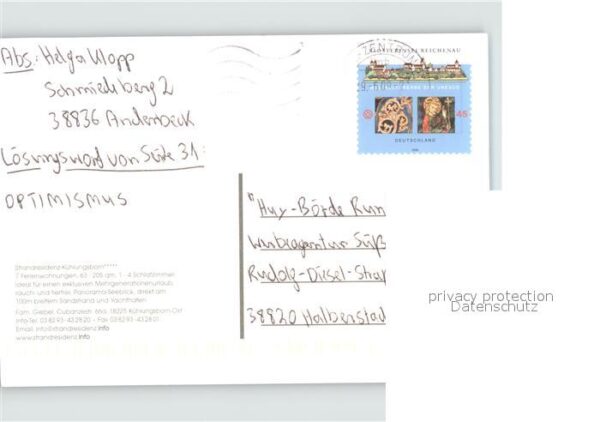 Abs: Helga Klopp
Schmiedeberg 2
38836 Anderbeck
Lösungswort von Seite 31:
OPTIMISMUS
KLOSTERINSEL REICHENAU
WELTKULTURERBE DER UNESCO
45
DEUTSCHLAND
"Huy-Börde Run
Werbeagentur Süß
Rudolf-Diesel-Straß
38820 Halberstad
Strandresidenz Kühlungsborn*****
7 Ferienwohnungen, 63 - 205 qm, 1 - 4 Schlafzimmer
Ideal für einen exklusiven Mehrgenerationenurlaub
rauch- und tierfrei, Panorama-Seeblick, direkt am
100m breitem Sandstrand und Yachthafen
Fam. Giebel, Cubanzestr. 66a, 18225 Kühlungsborn-Ost
Info-Tel. 03 82 93 - 43 28 20 · Fax 03 82 93 - 43 28 01
Email: info@strandresidenz.info
www.strandresidenz.info
privacy protection
Datenschutz